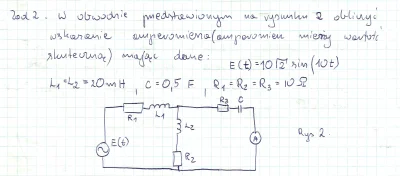 Zad 2. W obwodzie przedstawionym na rysunku 2 obliczyć
wskazanie amperomierza (amperomierz mierzy wartość
skuteczną) mając dane:
E(t)=10√2 sin(10t)
L1=L2=20mH, C=0,5 F, R1=R2=R3=10Ω
R1
L1
R3
C
L2
E(t)
R2
A
Rys 2.